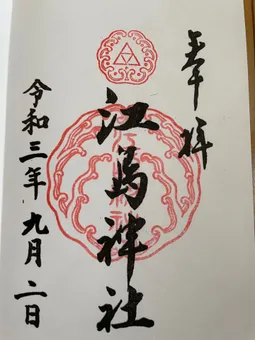 奉拝
江島神社
令和三年九月二日